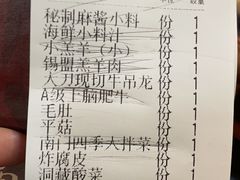 数量
秘制麻酱小料 份 1
海鲜小料汁 份 1
小羔羊(小) 份 1
锡盟羔羊肉 份 1
大刀现切牛吊龙 份 1
A级上脑肥牛 份 1
毛肚 份 1
平菇 份 1
南门四季大拌菜 份 1
炸腐皮 份 1
洞藏酸菜 份 1